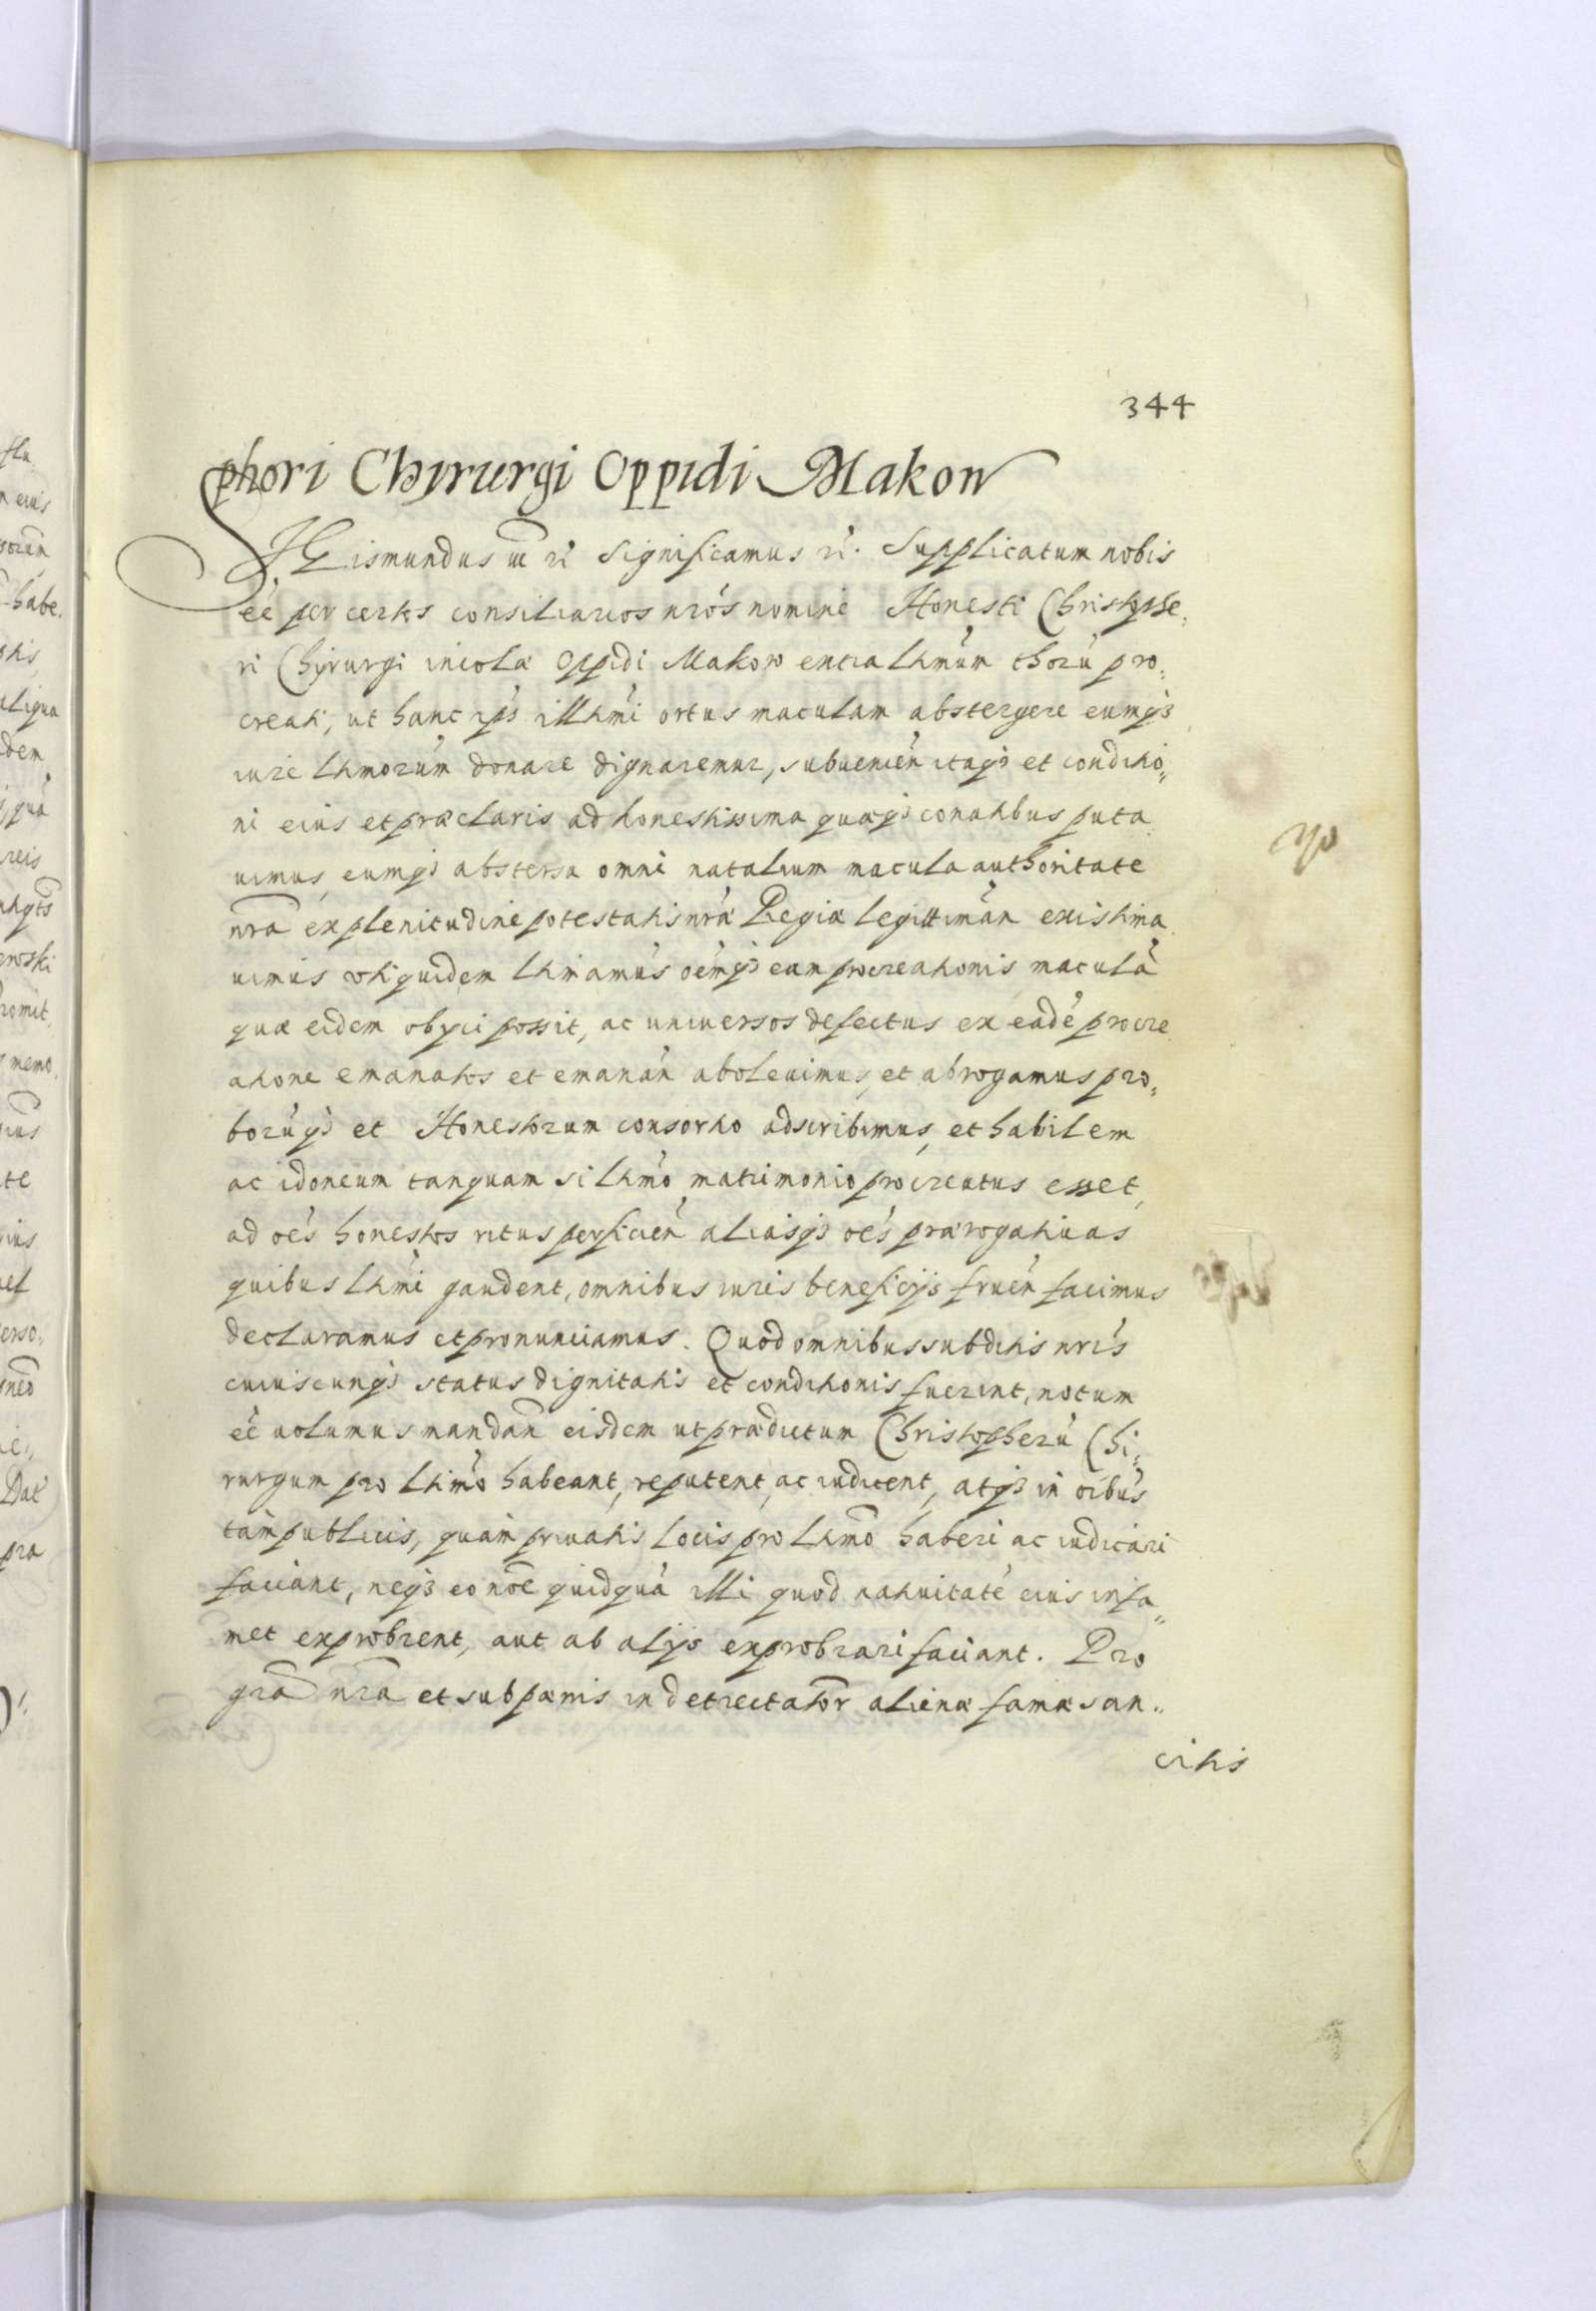 344
phori Chyrurgi Oppidi Makow
Sigismundus III rȝ Significamus rȝ. Supplicatum nobis
eē per certos consiliarios nrōs nomine Honesti Christophe,
ri Chyrurgi incolæ Oppidi Makow extra lt̄mum thorū pro,
creati, ut hanc ips illt̄mi ortus maculam abstergere eumqȝ
iure lt̄morum donare dignaremur, subuenien̄ itaqȝ et conditio„
ni eius et præclaris ad honestissima quæqȝ conatibus puta
uimus, eumqȝ abstersa omni natalium macula authoritate
nr̄a ex plenitudine potestatis nræ Regiæ legittiman̄ existima
uimus vti quidem lt̄mamus oēmqȝ eam procreationis maculā
quæ eidem obijci possit, ac uniuersos defectus ex eadē procre
atione emanatos et emanan̄ aboleuimus, et abrogamus pro,
borūqȝ et Honestorum consortio adscribimus, et habilem
ac idoneum tanquam si lt̄mo matrimonio procreatus esset,
ad oēs honestos ritus perficien̄ aliasqȝ oēs prærogatiuas
quibus lt̄mi gaudent, omnibus iuris beneficijs fruen̄ facimus
declaramus et pronunciamus. Quod omnibus subditis nrīs
cuiuscunqȝ status dignitatis et conditionis fuerint, notum
eē uolumus mandan̄ eisdem ut prædictum Christopherū Chi„
rurgum pro lt̄imo habeant, reputent, ac iudicent, atqȝ in oībus
tam publicis, quam priuatis locis pro lt̄mo haberi ac iudicari
faciant, neqȝ eo noē quidquā illi quod natiuitatē eius infa„
met exprobrent, aut ab alijs exprobrari faciant. Pro
gr̄a nr̄a et sub pœnis in detrectator̄ alienæ famæ san„
citis